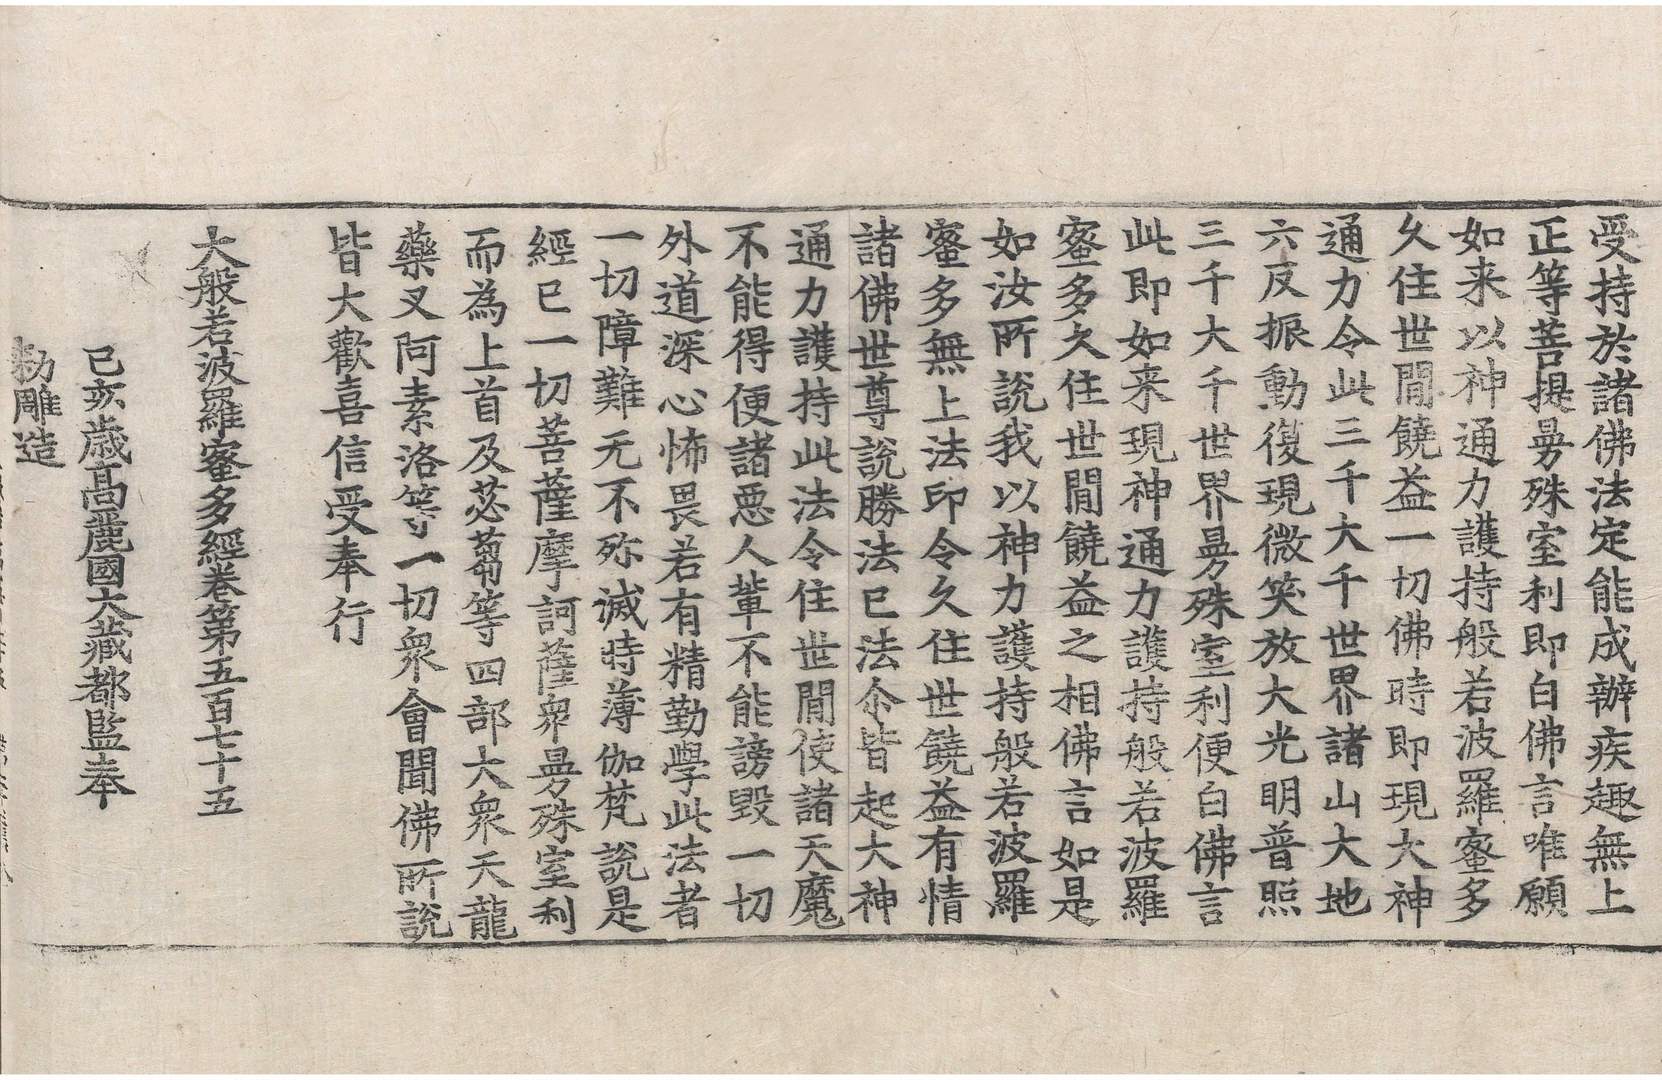 受持於諸佛法定能成辦疾趣無上
正等菩提曼殊室利即白佛言唯願
如来以神通力護持般若波羅蜜多
久住世間饒益一切佛時即現大神
通力令此三千大千世界諸山大地
六反振動復現微笑放大光明普照
三千大千世界曼殊室利便白佛言
此即如来現神通力護持般若波羅
蜜多久住世間饒益之相佛言如是
如汝所說我以神力護持般若波羅
蜜多無上法印令久住世饒益有情
諸佛世尊說勝法已法尒皆起大神
通力護持此法令住世間使諸天魔
不能得便諸惡人輩不能謗毀一切
外道深心怖畏若有精勤學此法者
一切障難无不殄滅時薄伽梵說是
經已一切菩薩摩訶薩衆曼殊室利
而為上首及苾芻等四部大衆天龍
藥叉阿素洛等一切衆會聞佛所說
皆大歡喜信受奉行
大般若波羅蜜多經卷第五百七十五
己亥歲高麗國大藏都監奉
勑雕造